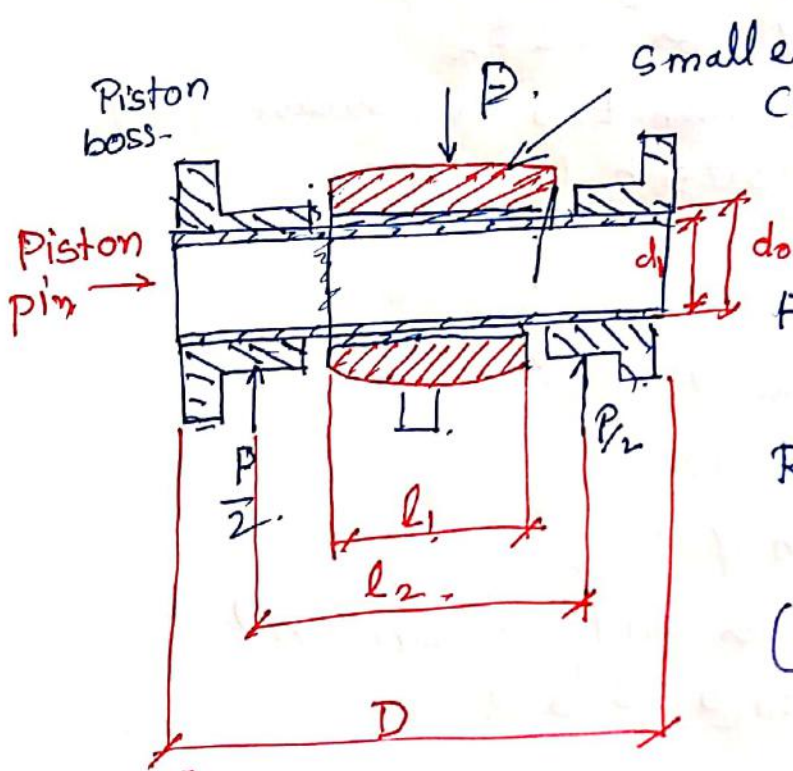 Piston
boss-
P.
Small e
C
Piston
pin
d₁
d₀
P/2
P
2.
l₁
l₂.
D